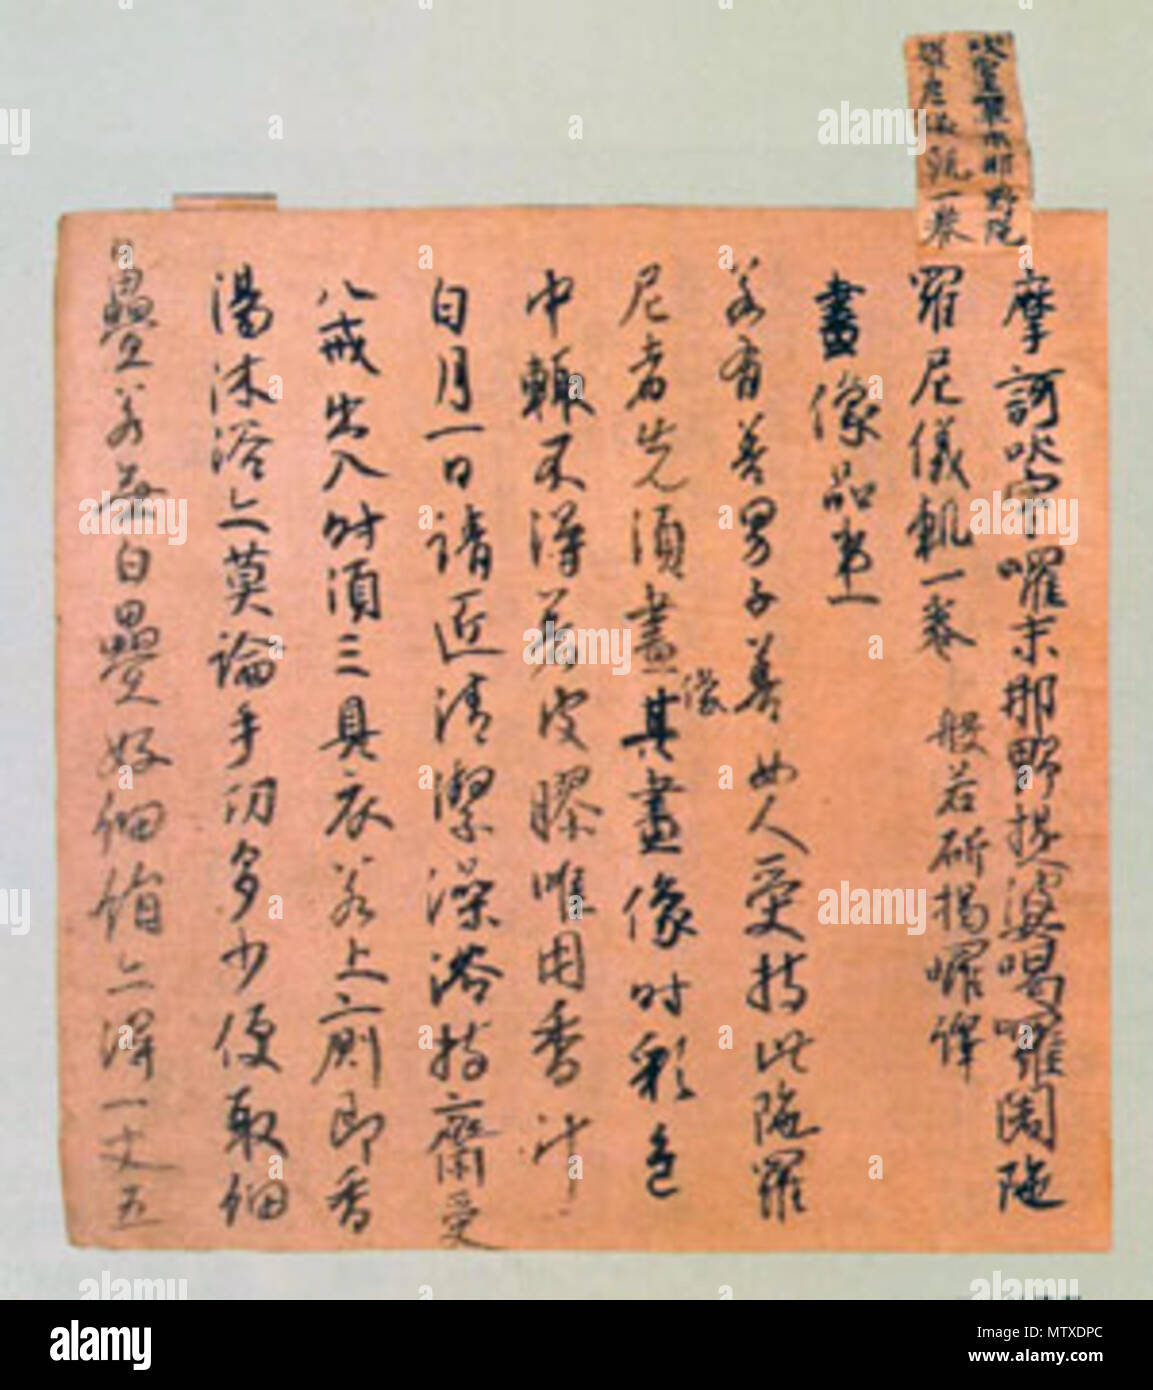 吠室囉末那野陁
羅尼儀軌一卷
摩訶吠室囉末那野提婆喝囉闍陁
羅尼儀軌一卷 般若斫揭囉譯
畫像品第一
若有善男子善女人受持此陁羅
尼者先須畫像其畫像時彩色
中輙不得著皮膠唯用香汁
白月一日請近清潔澡浴持齋受
八戒出入時須三具衣若上廁即香
湯沐浴亦莫論手功多少便取細
疊若無白疊好細絹亦得一丈五
alamy
Image ID: MTXDPC
www.alamy.com